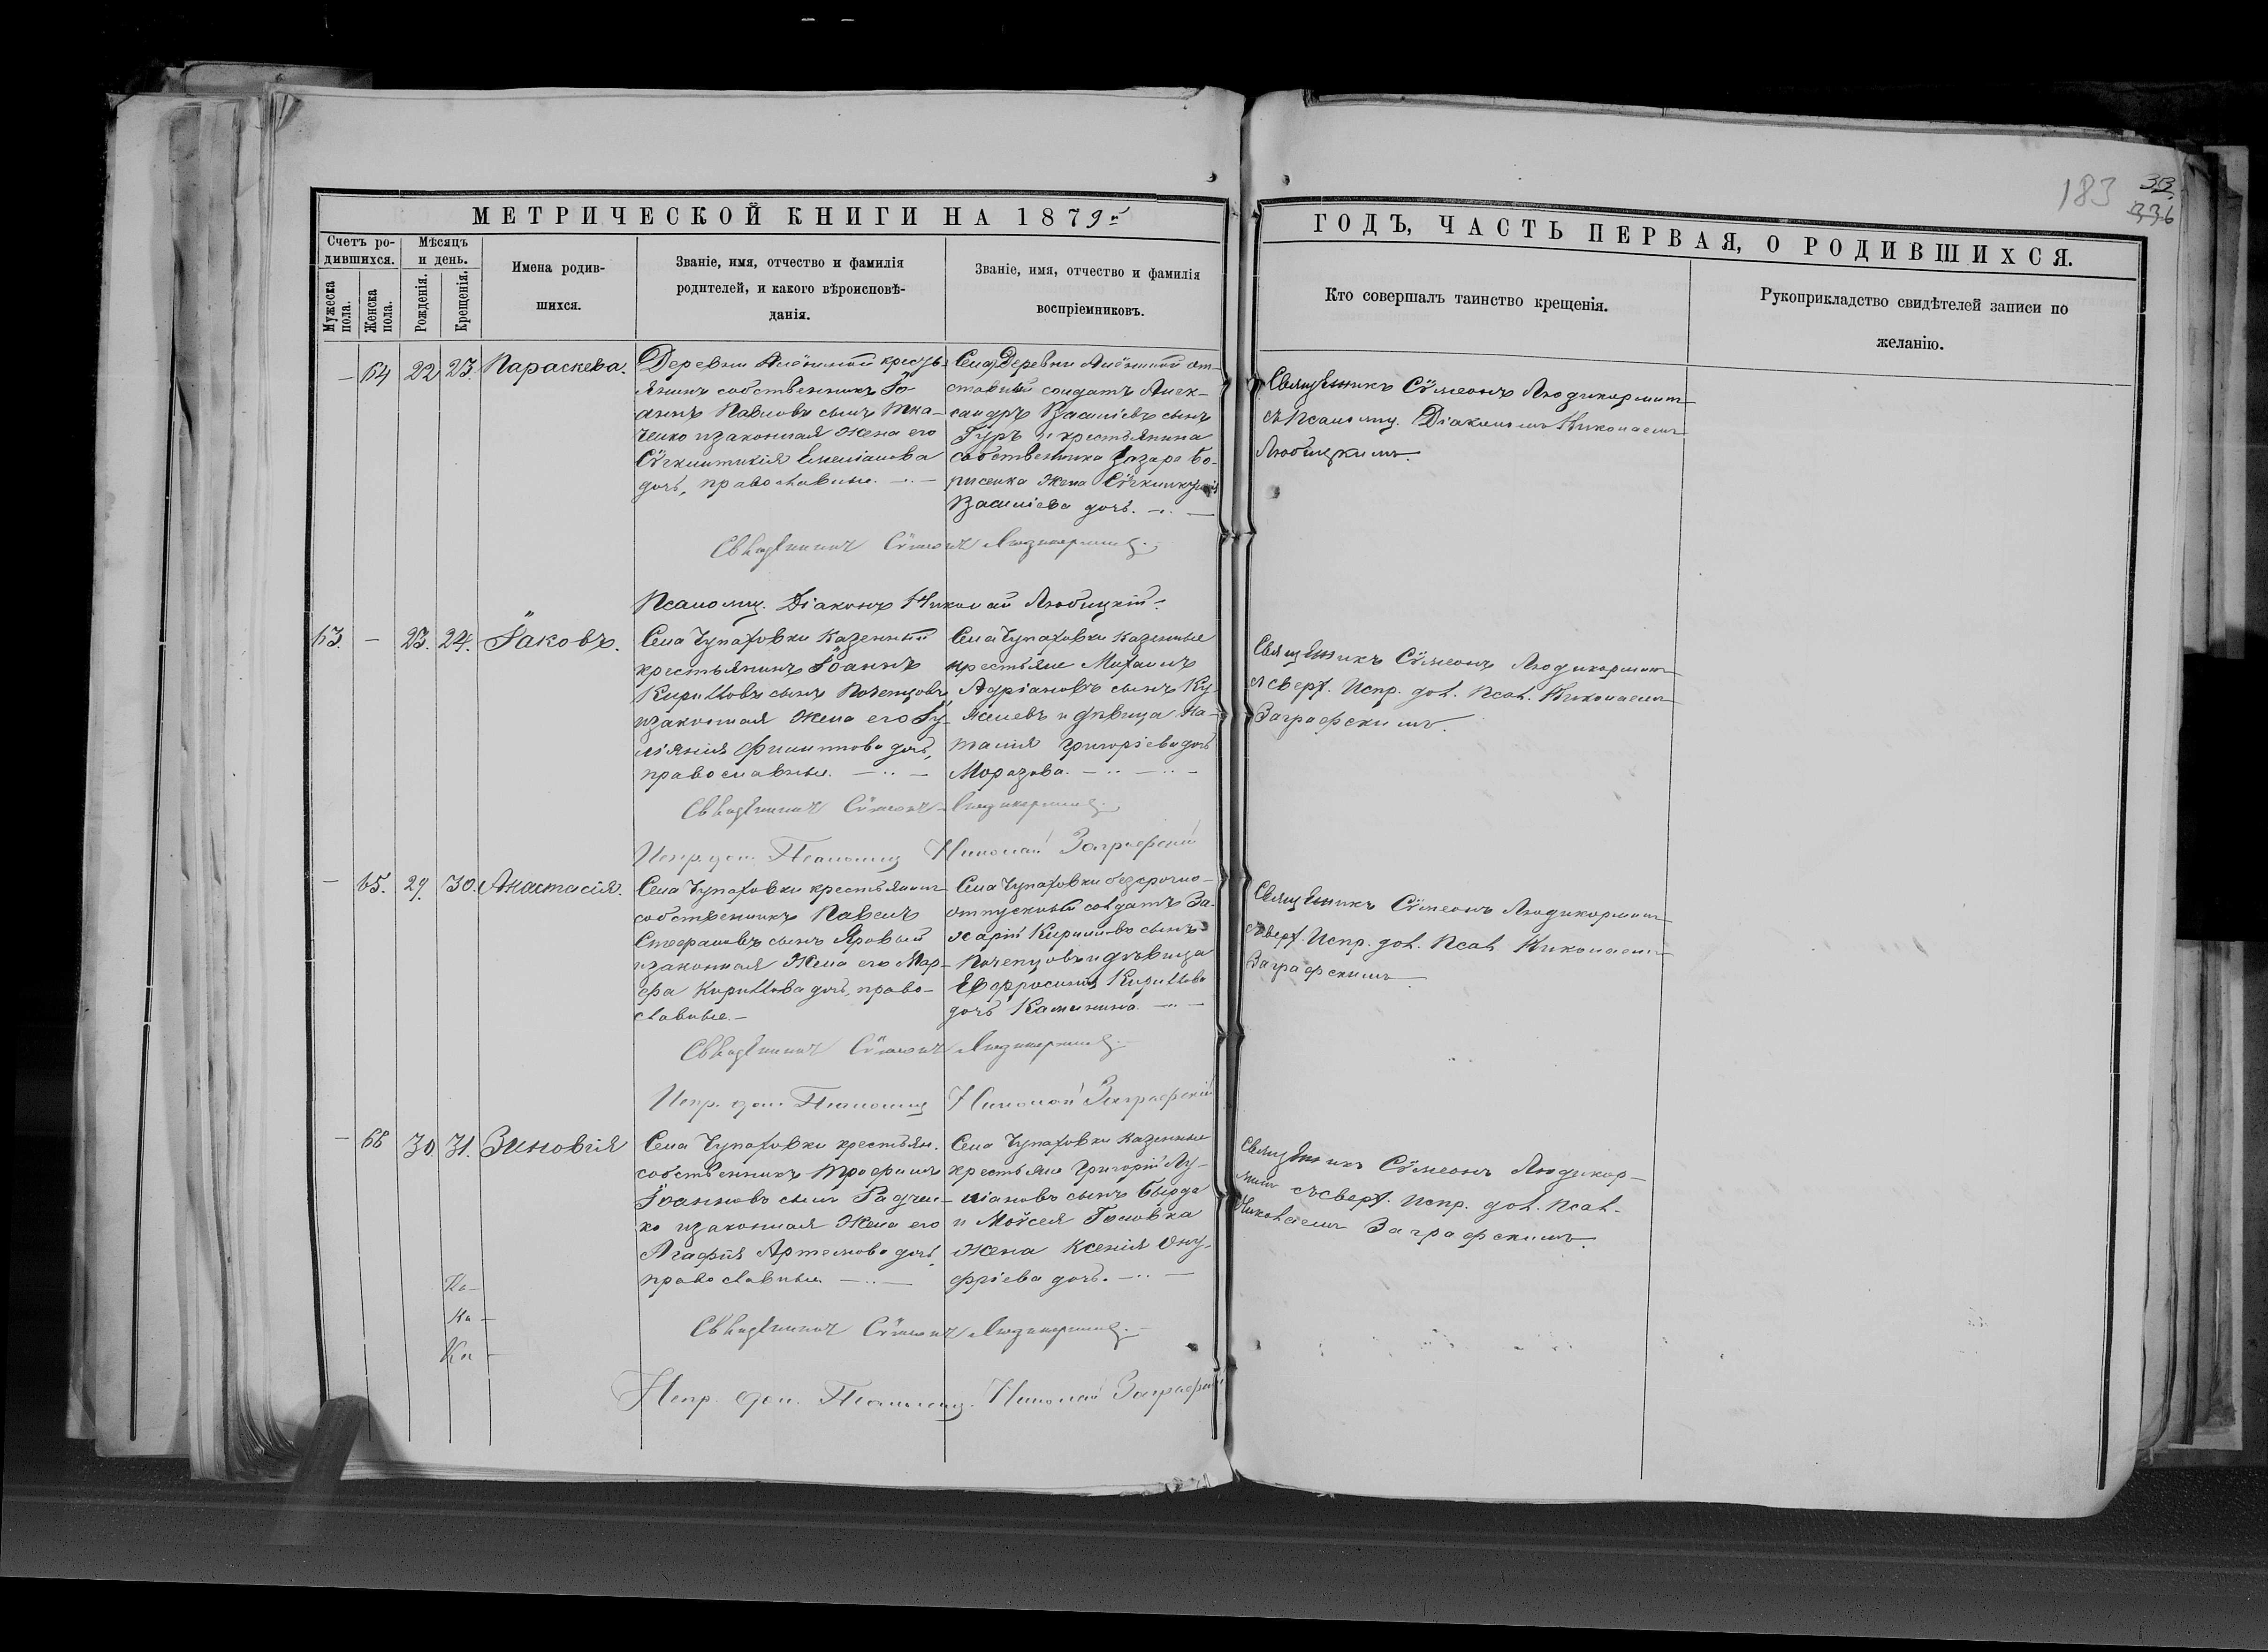 183
33
336
МЕТРИЧЕСКОЙ КНИГИ НА 1879й
ГОДЪ, ЧАСТЬ ПЕРВАЯ, О РОДИВШИХСЯ.
Счетъ ро-
дившихся.
Мужеска
пола.
Женска
пола.
Мѣсяцъ
и день.
Рожденія.
Крещенія.
Имена родив-
шихся.
Званіе, имя, отчество и фамилія
родителей, и какого вѣроисповѣ-
данія.
Званіе, имя, отчество и фамилія
воспріемниковъ.
Кто совершалъ таинство крещенія.
Рукоприкладство свидѣтелей записи по
желанію.
— 64 22 23. Параскева.
Деревни кресть-
янинъ собственникъ Іо-
аннъ Павловъ сынъ Тка-
ченко и законная жена его
Сѵнклитикія Емеліанова
дочь, православные.
Деревни от-
ставный солдатъ Алек-
сандръ Василіевъ сынъ
Гуръ и крестьянина
собственника Лазаря Бо-
рисенка жена Сѵнклитикія
Василіева дочь.
Священникъ Сѵмеонъ
съ Псаломщ. Діакономъ Николаемъ
Любицкимъ.
Священникъ Сѵмеонъ
Псаломщ. Діаконъ Николай Любицкій.
63. — 23. 24. Іаковъ.
Села Чупаховки казенный
крестьянинъ Іоаннъ
Кирилловъ сынъ Почепцовъ
и законная жена его Іу-
ліянія Филиппова дочь,
православные.
Села Чупаховки казенные
крестьяне Михаилъ
Адріановъ сынъ Ку-
и дѣвица На-
талія Григоріева дочь
Морозова.
Священникъ Сѵмеонъ
сверх. Испр. дол. Псал. Николаемъ
Заграфскимъ.
Священникъ Сѵмеонъ
Испр. дол. Псаломщ. Николай Заграфскій
— 65. 29. 30. Анастасія.
Села Чупаховки крестьянинъ
собственникъ Павелъ
Стефановъ сынъ Яровый
и законная жена его Мар-
фа Кириллова дочь, право-
славные.
Села Чупаховки безсрочно-
отпускной солдатъ За-
харій Кирилловъ сынъ
Почепцовъ и дѣвица
Евфросинія Кириллова
дочь Калинина.
Священникъ Сѵмеонъ
сверх. Испр. дол. Псал. Николаемъ
Заграфскимъ.
Священникъ Сѵмеонъ
Испр. дол. Псаломщ. Николай Заграфскій
— 66 30. 31. Зиновія
Села Чупаховки крестьян.
собственникъ Трофимъ
Іоанновъ сынъ Радчен-
ко и законная жена его
Агафія Артемова дочь,
православные.
Села Чупаховки казенные
крестьяне Григорій Лу-
кіановъ сынъ Бырда
и Моѵсея Головка
жена Ксенія Ону-
фріева дочь.
Священникъ Сѵмеонъ
съ сверх. Испр. дол. Псал.
Николаемъ Заграфскимъ.
Священникъ Сѵмеонъ
Испр. дол. Псаломщ. Николай Заграфскій